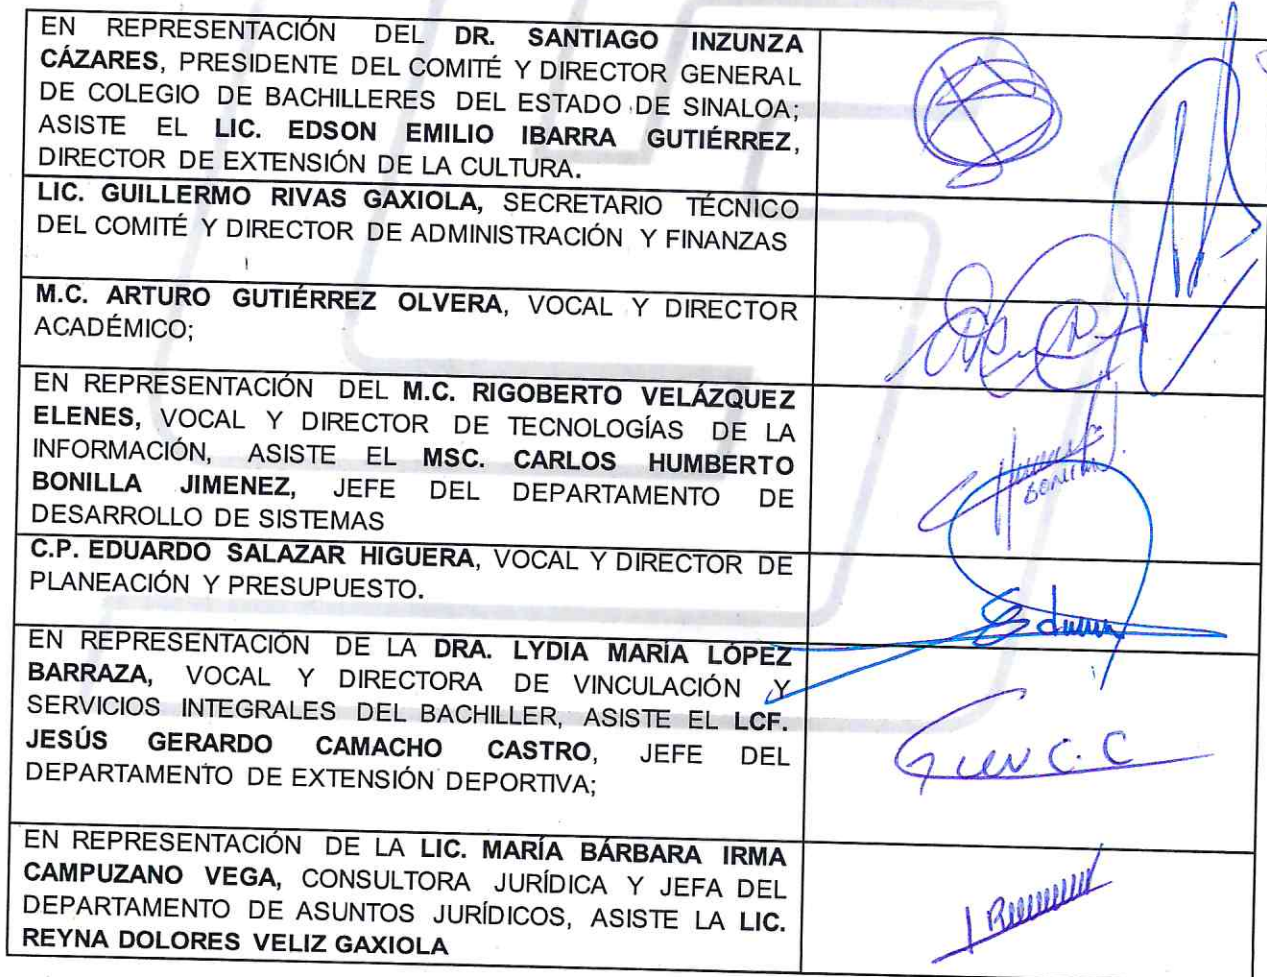 EN REPRESENTACIÓN DEL DR. SANTIAGO INZUNZA
CÁZARES, PRESIDENTE DEL COMITÉ Y DIRECTOR GENERAL
DE COLEGIO DE BACHILLERES DEL ESTADO DE SINALOA;
ASISTE EL LIC. EDSON EMILIO IBARRA GUTIÉRREZ,
DIRECTOR DE EXTENSIÓN DE LA CULTURA.
LIC. GUILLERMO RIVAS GAXIOLA, SECRETARIO TÉCNICO
DEL COMITÉ Y DIRECTOR DE ADMINISTRACIÓN Y FINANZAS
M.C. ARTURO GUTIÉRREZ OLVERA, VOCAL Y DIRECTOR
ACADÉMICO;
EN REPRESENTACIÓN DEL M.C. RIGOBERTO VELÁZQUEZ
ELENES, VOCAL Y DIRECTOR DE TECNOLOGÍAS DE LA
INFORMACIÓN, ASISTE EL MSC. CARLOS HUMBERTO
BONILLA JIMENEZ, JEFE DEL DEPARTAMENTO DE
DESARROLLO DE SISTEMAS
C.P. EDUARDO SALAZAR HIGUERA, VOCAL Y DIRECTOR DE
PLANEACIÓN Y PRESUPUESTO.
EN REPRESENTACIÓN DE LA DRA. LYDIA MARÍA LÓPEZ
BARRAZA, VOCAL Y DIRECTORA DE VINCULACIÓN Y
SERVICIOS INTEGRALES DEL BACHILLER, ASISTE EL LCF.
JESÚS GERARDO CAMACHO CASTRO, JEFE DEL
DEPARTAMENTO DE EXTENSIÓN DEPORTIVA;
EN REPRESENTACIÓN DE LA LIC. MARÍA BÁRBARA IRMA
CAMPUZANO VEGA, CONSULTORA JURÍDICA Y JEFA DEL
DEPARTAMENTO DE ASUNTOS JURÍDICOS, ASISTE LA LIC.
REYNA DOLORES VELIZ GAXIOLA